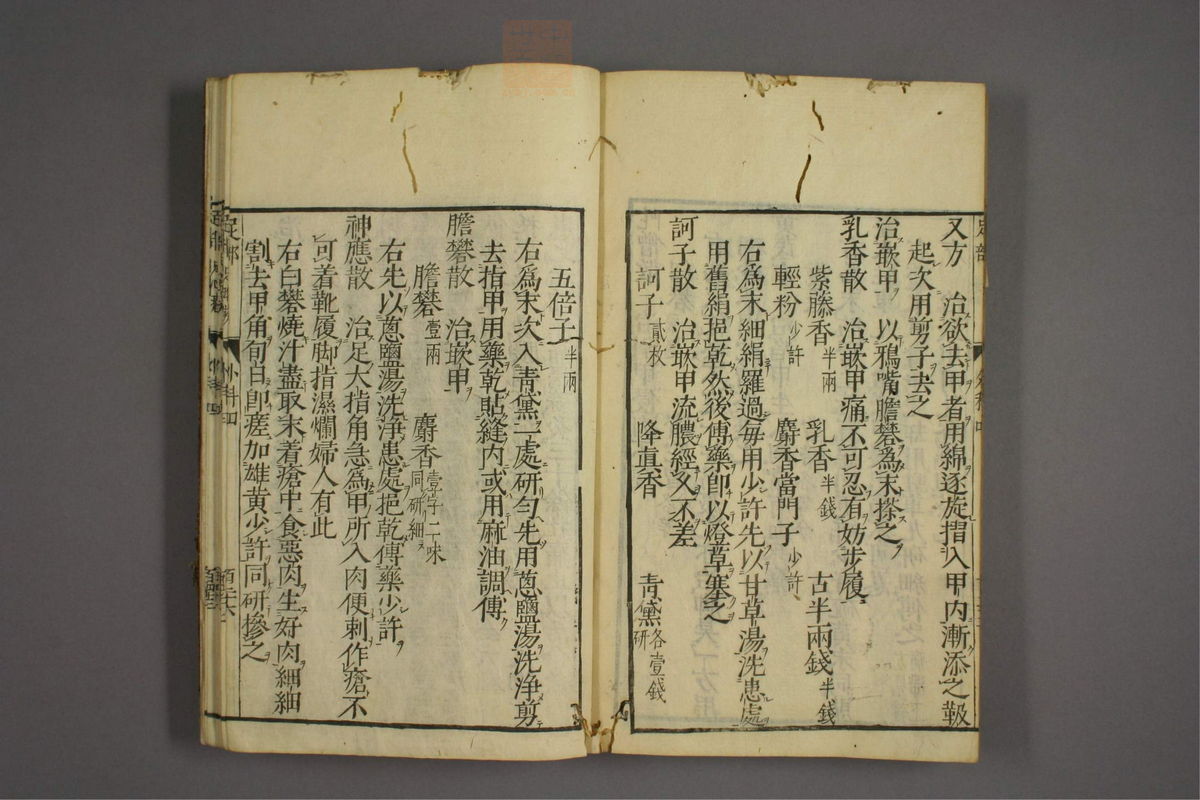 又方　治欲去甲者用綿逐旋搢入甲内漸添之䩞
起次用剪子去之
治嵌甲　以鴉嘴膽礬為末搽之
乳香散　治嵌甲痛不可忍有妨步履
紫藤香半兩　乳香半錢　古半兩錢半錢
輕粉少許　麝香當門子少許
右為末細絹羅過每用少許先以甘草湯洗患處
用舊絹挹乾然後傅藥即以燈草塞之
訶子散　治嵌甲流膿經乂不差
訶子貳枚　降真香　青黛各壹錢研
五倍子半兩
右為末次入青黛一處研勻先用蔥鹽湯洗淨剪
去指甲用藥乾貼縫内或用麻油調傅
膽礬散　治嵌甲
膽礬壹兩　麝香壹字二味同研細
右先以蔥鹽湯洗淨患處挹乾傅藥少許
神應散　治足大指角急為甲所入肉便刺作瘡不
可着靴履脚指濕爛婦人有此
右白礬燒汁盡取末着瘡中食惡肉生好肉細細
割去甲角旬日即瘥加雄黃少許同研摻之
足部
外科四